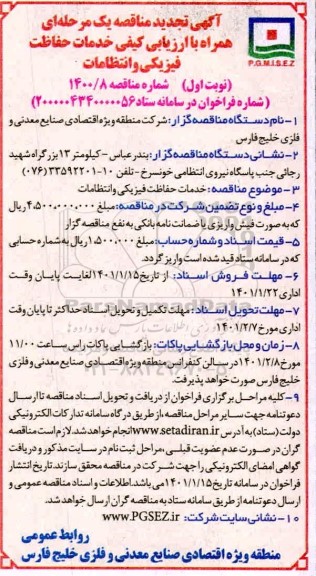 آگهی تجدید مناقصه یک مرحله‌ای
همراه با ارزیابی کیفی خدمات حفاظت
فیزیکی و انتظامات
P.G.M.I.S.E.Z
(نوبت اول) شماره مناقصه ۱۴۰۰/۸
(شماره فراخوان در سامانه ستاد ۲۰۰۰۰۰۴۳۴۰۰۰۰۰۵۶)
۱- نام دستگاه مناقصه گزار: شرکت منطقه ویژه اقتصادی صنایع معدنی و
فلزی خلیج فارس
۲- نشانی دستگاه مناقصه گزار: بندرعباس - کیلومتر ۱۳ بزرگراه شهید
رجائی جنب پاسگاه نیروی انتظامی خونسرخ - تلفن ۱۰-۳۳۵۹۲۲۰۱ (۰۷۶)
۳- موضوع مناقصه: خدمات حفاظت فیزیکی و انتظامات
۴- مبلغ و نوع تضمین شرکت در مناقصه: مبلغ ۴،۵۰۰،۰۰۰،۰۰۰ ریال
که به صورت فیش واریزی یا ضمانت نامه بانکی به نفع مناقصه گزار
۵- قیمت اسناد و شماره حساب: مبلغ ۱،۵۰۰،۰۰۰ ریال به شماره حسابی
که در سامانه ستاد قید شده است واریز گردد.
۶- مهلت فروش اسناد: از تاریخ ۱۴۰۱/۱/۱۵ لغایت پایان وقت
اداری ۱۴۰۱/۱/۲۲
۷- مهلت تحویل اسناد: مهلت تکمیل و تحویل اسناد حداکثر تا پایان وقت
اداری مورخ ۱۴۰۱/۲/۷
۸- زمان و محل بازگشایی پاکات: بازگشایی پاکات راس ساعت ۱۱/۰۰
مورخ ۱۴۰۱/۲/۸ در سالن کنفرانس منطقه ویژه اقتصادی صنایع معدنی و فلزی
خلیج فارس صورت خواهد پذیرفت.
۹- کلیه مراحل برگزاری فراخوان از دریافت و تحویل اسناد مناقصه تا ارسال
دعوتنامه جهت سایر مراحل مناقصه، از طریق درگاه سامانه تدارکات الکترونیکی
دولت (ستاد) به آدرس www.setadiran.ir انجام خواهد شد. لازم است مناقصه
گران در صورت عدم عضویت قبلی، مراحل ثبت نام در سایت مذکور و دریافت
گواهی امضای الکترونیکی را جهت شرکت در مناقصه محقق سازند. تاریخ انتشار
فراخوان در سامانه تاریخ ۱۴۰۱/۱/۱۵ می باشد. اطلاعات و اسناد مناقصه عمومی و
ارسال دعوتنامه از طریق سامانه ستاد به مناقصه گران ارسال خواهد شد.
۱۰- نشانی سایت شرکت: www.PGSEZ.ir
روابط عمومی
منطقه ویژه اقتصادی صنایع معدنی و فلزی خلیج فارس